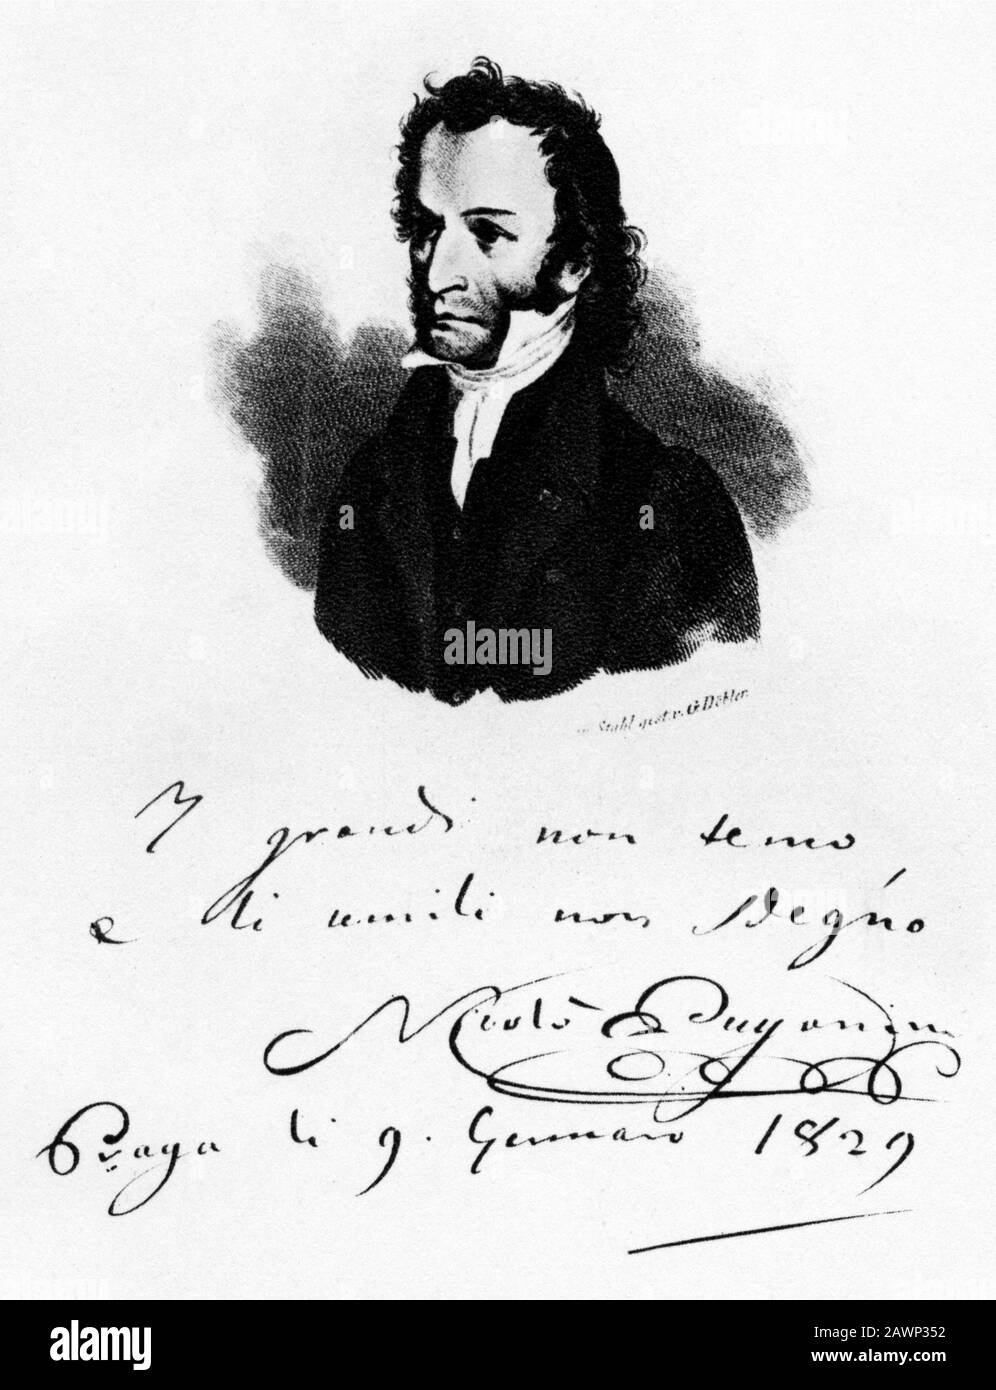 Stahl gest. v. G Döbler.
I grandi non temo
e li umili non sdegno
Nicolò Paganini
Praga li 9. Gennaro 1829
alamy
Image ID: 2AWP352
www.alamy.com